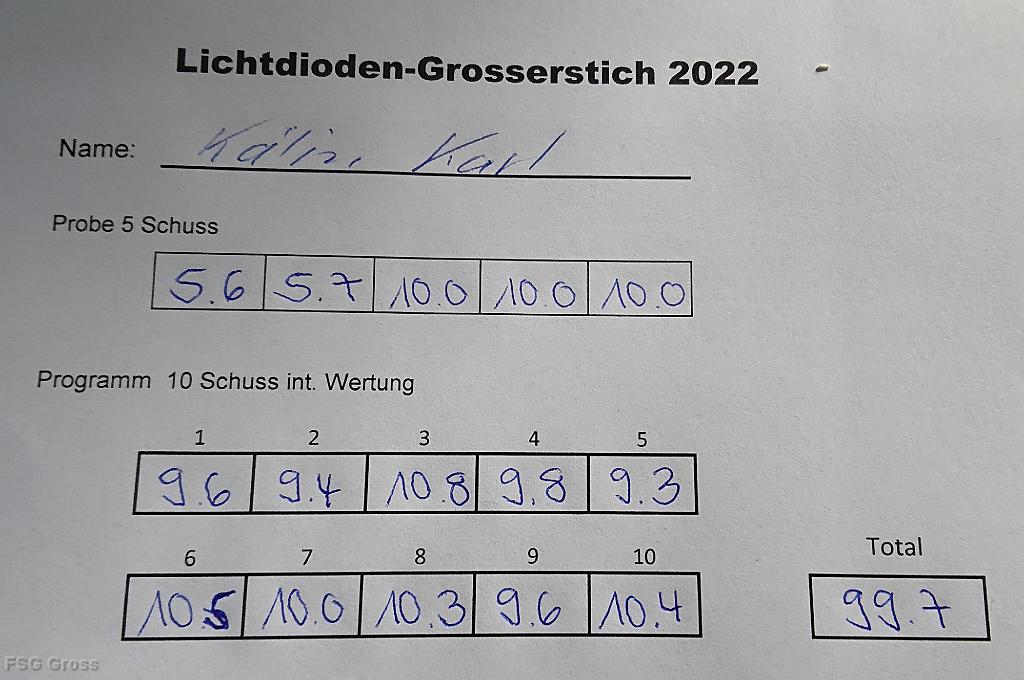 Lichtdioden-Grosserstich 2022
Name: Kälin Karl
Probe 5 Schuss
5.6 5.7 10.0 10.0 10.0
Programm 10 Schuss int. Wertung
1 2 3 4 5
9.6 9.4 10.8 9.8 9.3
6 7 8 9 10 Total
10.5 10.0 10.3 9.6 10.4 99.7
FSG Gross